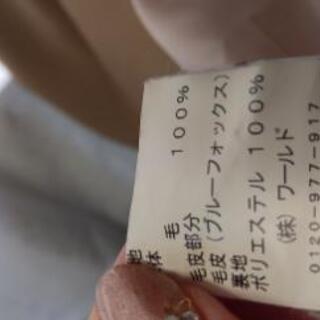 地
体 毛 100%
毛皮部分
毛皮 (ブルーフォックス)
裏地
ポリエステル 100%
(株) ワールド
0120-977-917